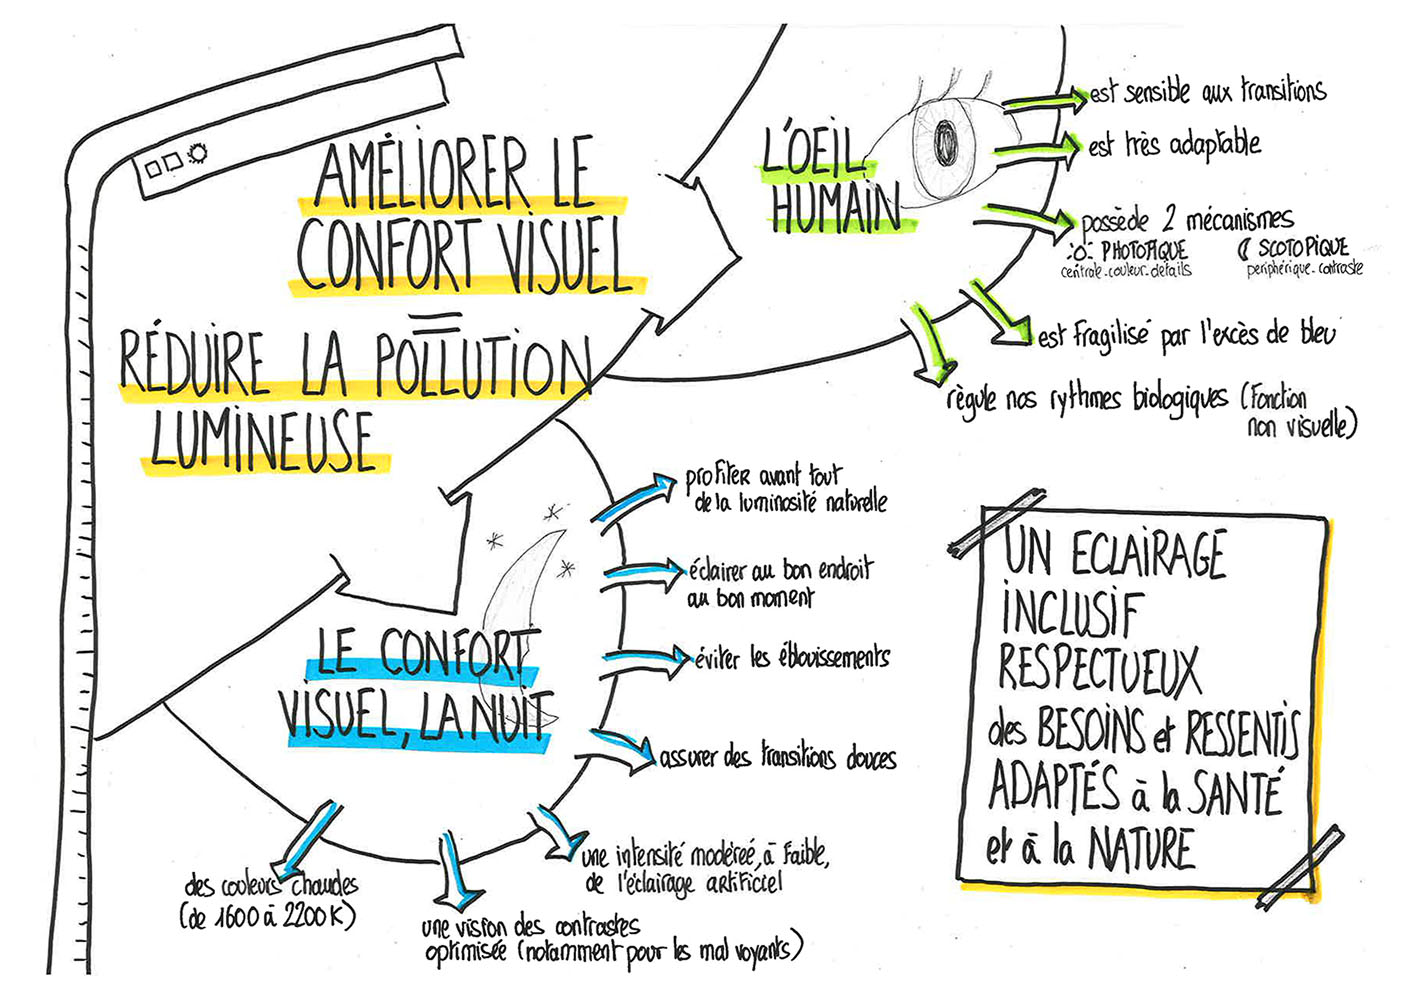 AMÉLIORER LE
CONFORT VISUEL
=
RÉDUIRE LA POLLUTION
LUMINEUSE
L'OEIL
HUMAIN
est sensible aux transitions
est très adaptable
possède 2 mécanismes
PHOTOPIQUE
centrale-couleur-details
SCOTOPIQUE
periphérique-contraste
est fragilisé par l'excès de bleu
règule nos rythmes biologiques (Fonction
non visuelle)
LE CONFORT
VISUEL, LA NUIT
profiter avant tout
de la luminosité naturelle
éclairer au bon endroit
au bon moment
éviter les éblouissements
assurer des transitions douces
une intensité modéreé, à Faible,
de l'éclairage artificiel
une vision des contrastes
optimisée (notamment pour les mal voyants)
des couleurs chaudes
(de 1600 à 2200K)
UN ECLAIRAGE
INCLUSIF
RESPECTUEUX
des BESOINS et RESSENTIS
ADAPTÉS à la SANTÉ
et à la NATURE